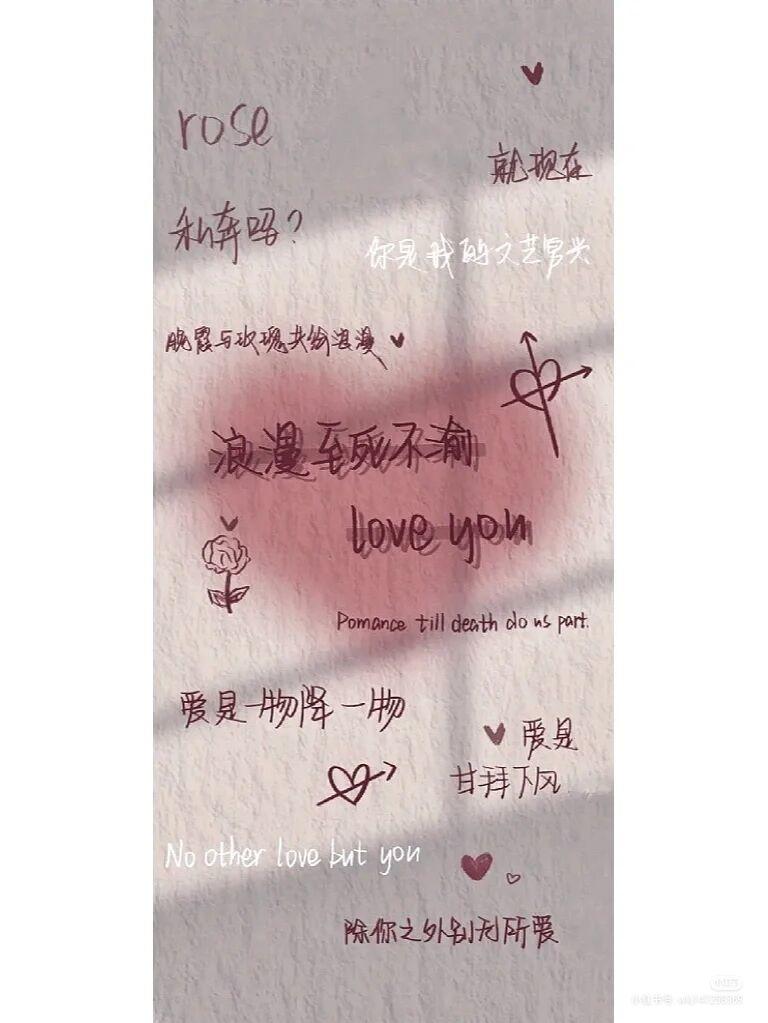 rose
就现在
私奔吗?
你是我的文艺复兴
晚霞与玫瑰共给浪漫
浪漫至死不渝
love you
Pomance till death do us part.
爱是一物降一物
爱是
甘拜下风
No other love but you
除你之外别无所爱
小红书